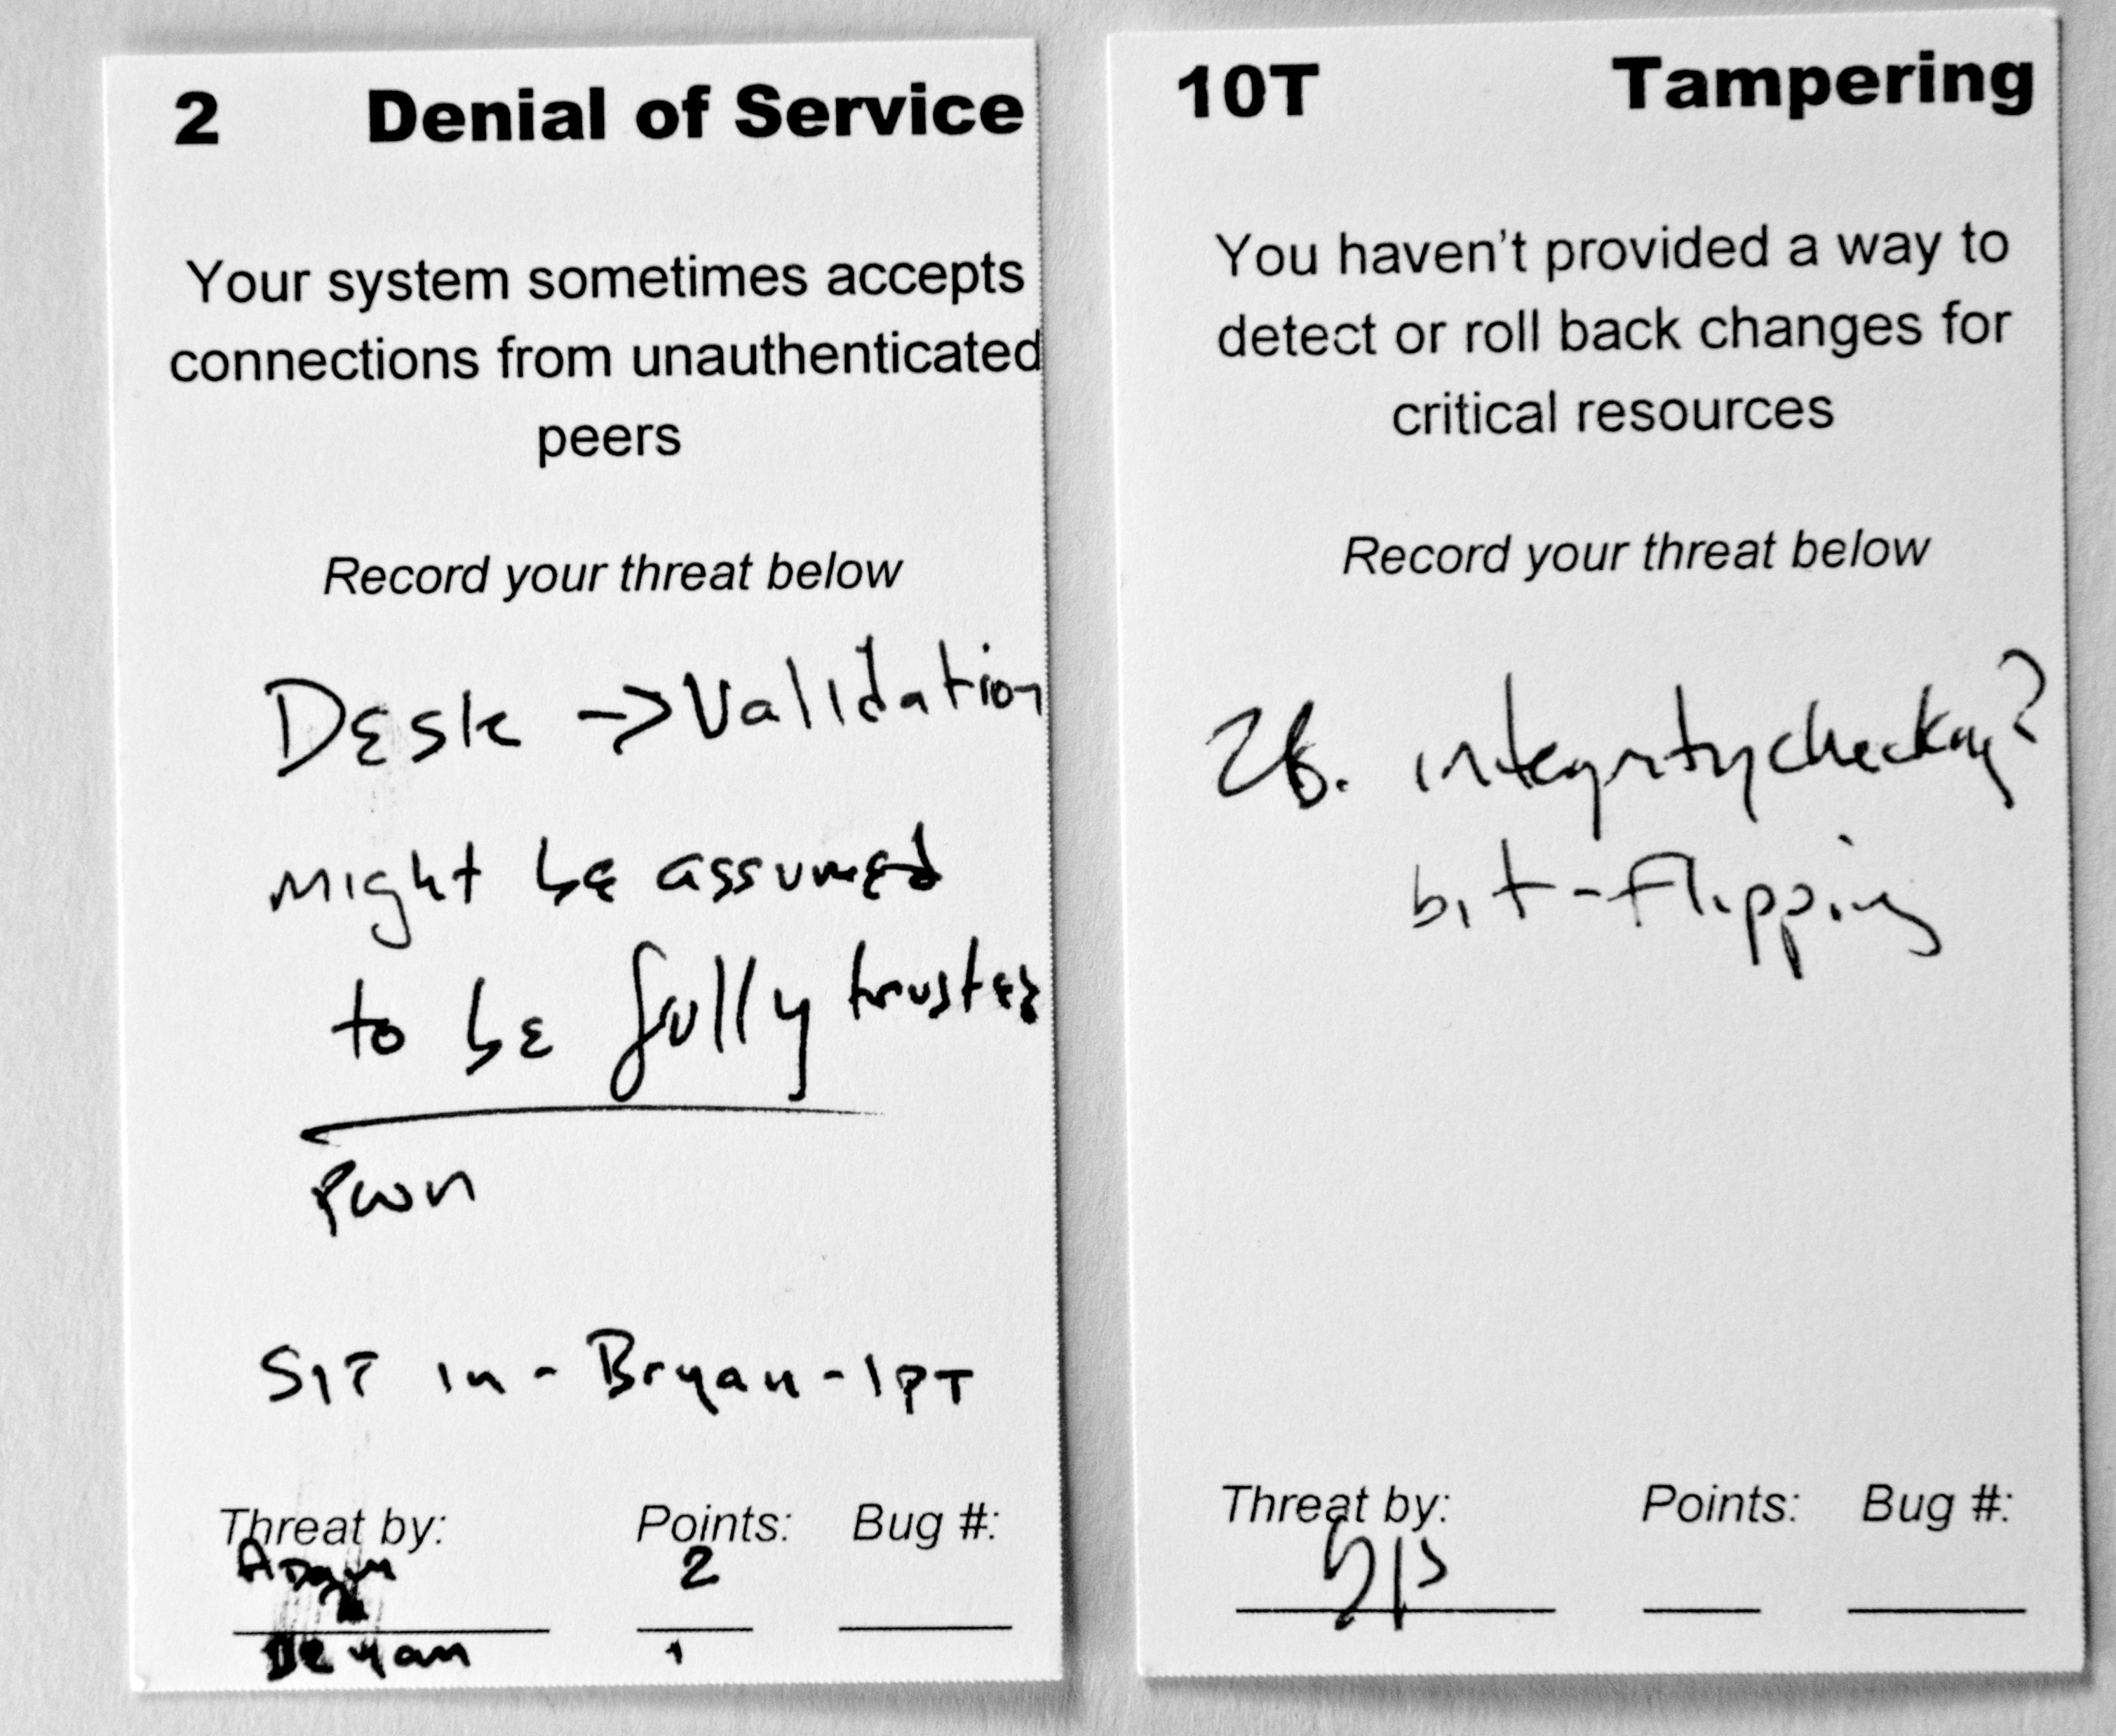 2 Denial of Service
Your system sometimes accepts
connections from unauthenticated
peers
Record your threat below
Desk -> Validation
might be assumed
to be fully trusted
Pwn
SIT in - Bryan - 1PT
Threat by: Points: Bug #:
Adam 2
Bryan 1
10T Tampering
You haven't provided a way to
detect or roll back changes for
critical resources
Record your threat below
integrity checking?
bit-flipping
Threat by: Points: Bug #: